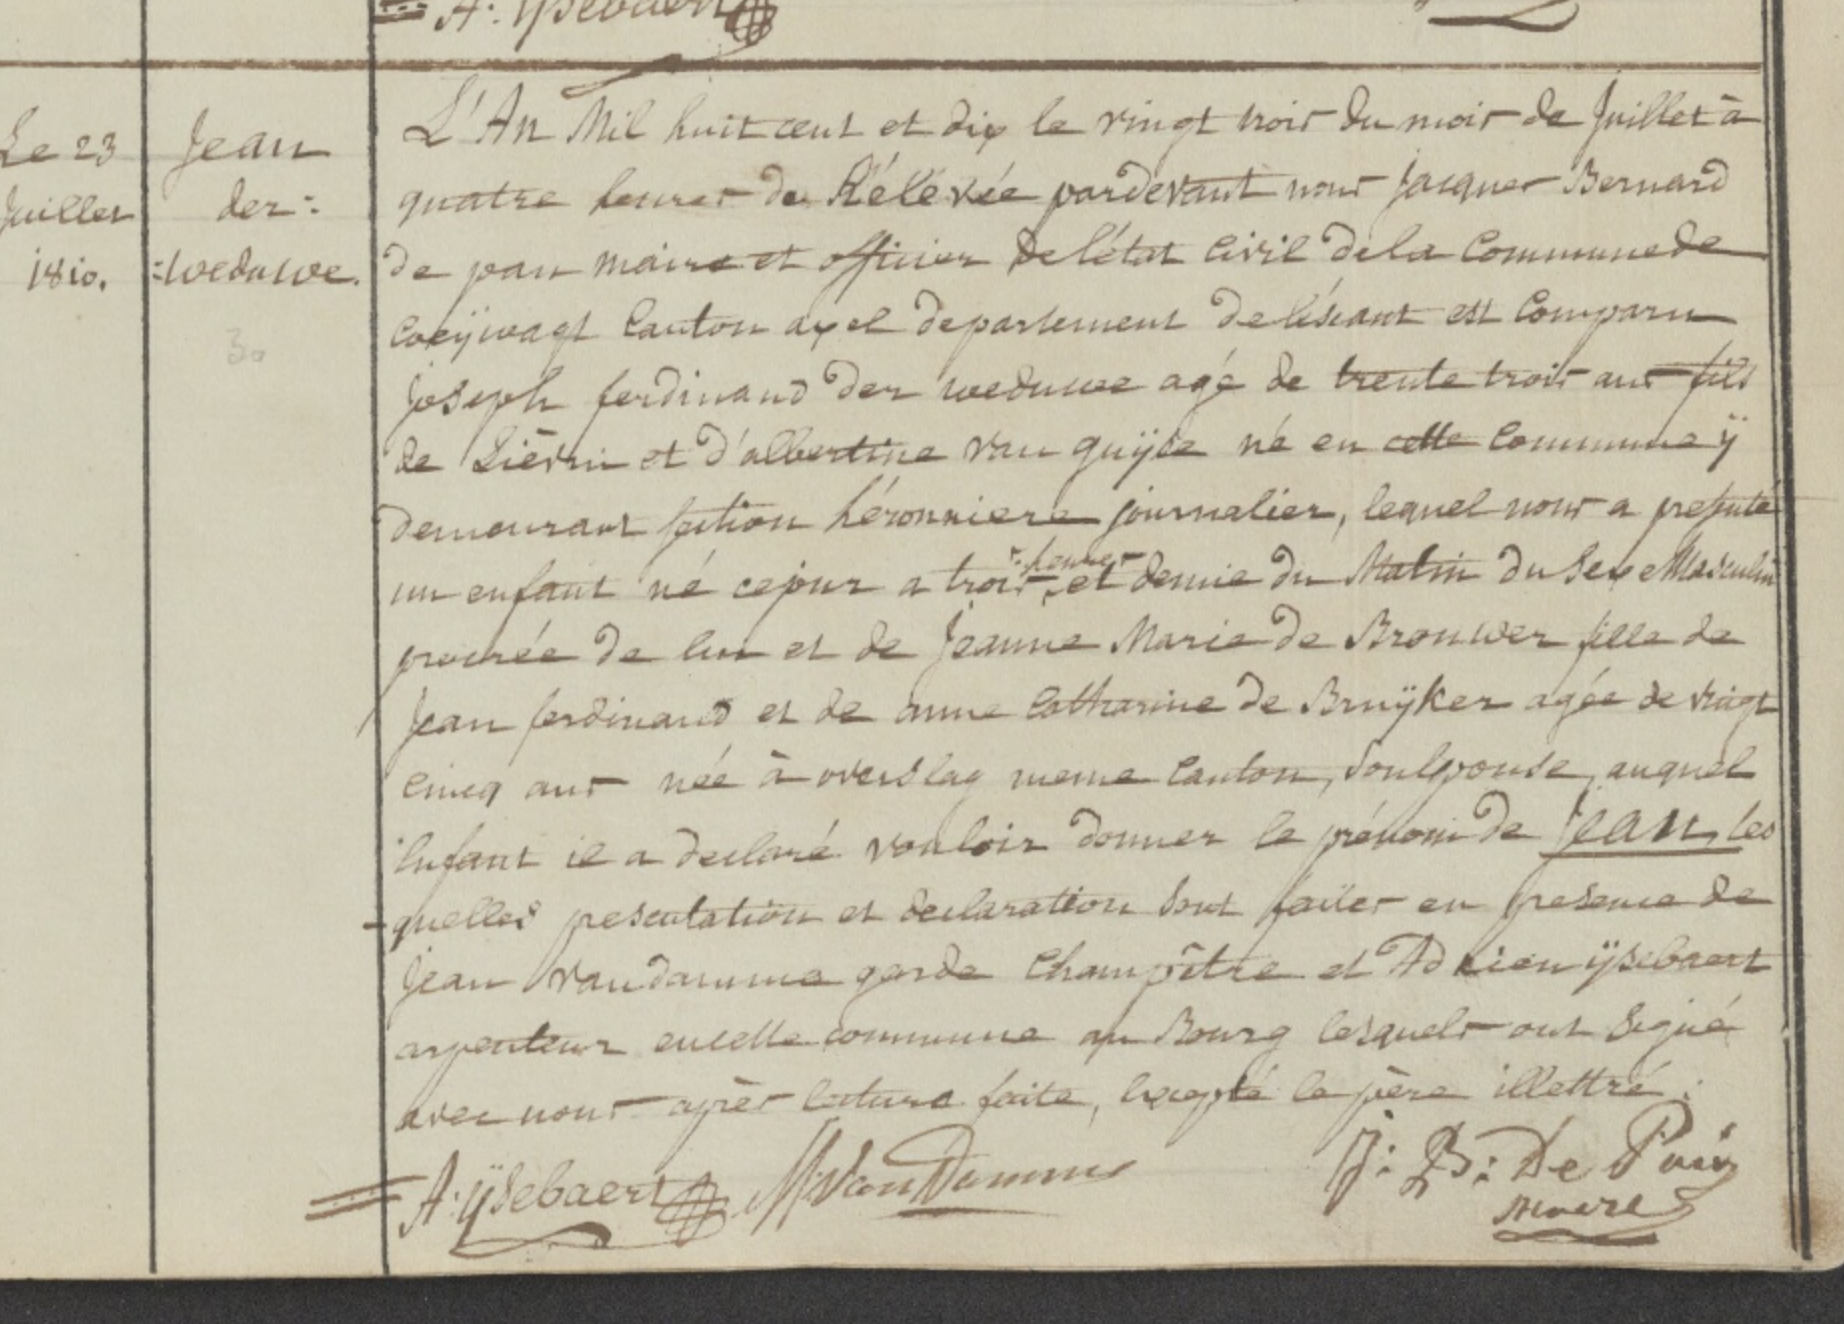 A: ijsebaert
Le 23
Juillet
1810.
Jean
der =
=weduwe.
30
L'An Mil huit cent et dix le vingt trois du mois de Juillet à
quatre heures de Rélévée pardevant nous Jacques Bernard
de pau maire et officier de l'état Civil de la Commune de
Coeÿwagt Canton axel departement de léscaut est Comparu
Joseph ferdinand der weduwe agé de trente trois ans fils
de Liévin et d'albertine van guÿse né en cette Commune ÿ
demeurant section héronniere journalier, lequel nous a presenté
un enfant né cejour a trois heures et demie du Matin du Sexe Masculin
procrée de lui et de Jeanne Marie de Brouwer fille de
Jean ferdinand et de anne Catharine de Bruÿker agée de vingt
Cincq ans née à overslag meme Canton, Son Epouse, auquel
Enfant il a declaré vouloir donner le prénom de Jean, les
quelles presentation et declaration sont faites en presence de
Jean vandamme garde Champêtre et Adrien ÿsebaert
arpenteur encette commune au Bourg lesquels ont Signé
avec nous après lecture faite, Excepté le père illettré.
A: ÿsebaert
VanDamme
J: B: De Pau
maire